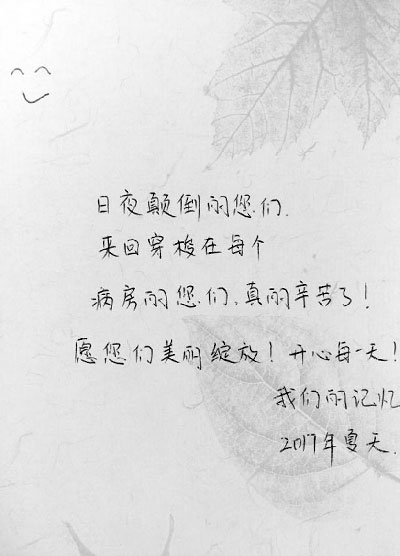 日夜颠倒的您们.
来回穿梭在每个
病房的您们,真的辛苦了!
愿您们美丽绽放!开心每一天!
我们的记忆
2017年夏天.